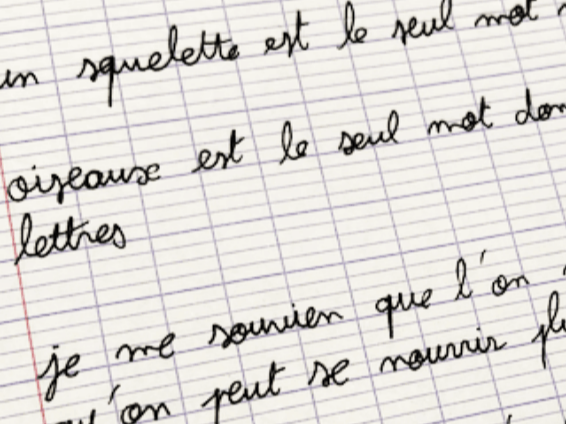 un squelette est le seul mot
oiseause est le seul mot
lettres
je me souvien que l'on
qu'on peut se nourrir